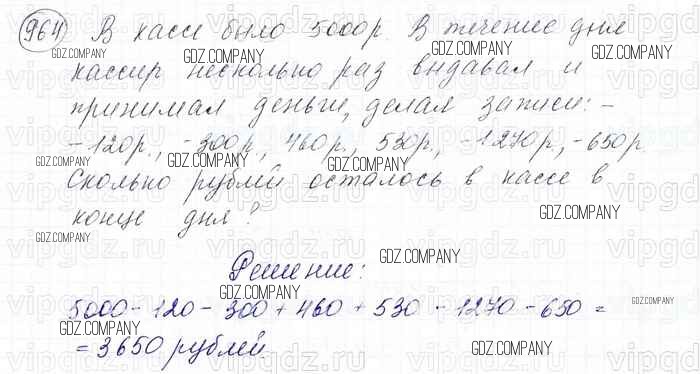 964) В кассе было 5000р. В течение дня
кассир несколько раз выдавал и
принимал деньги, делая записи: -
-120р., -300р., 460р., 530р., -1270р., -650р.
Сколько рублей осталось в кассе в
конце дня?
Решение:
5000 - 120 - 300 + 460 + 530 - 1270 - 650 =
= 3650 рублей
GDZ.COMPANY
GDZ.COMPANY
GDZ.COMPANY
GDZ.COMPANY
GDZ.COMPANY
GDZ.COMPANY
GDZ.COMPANY
GDZ.COMPANY
GDZ.COMPANY
GDZ.COMPANY
GDZ.COMPANY
GDZ.COMPANY
GDZ.COMPANY
GDZ.COMPANY
vipgdz.ru